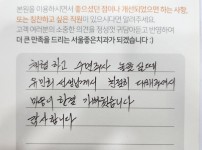 본원을 이용하시면서 좋으셨던 점이나 개선되었으면 하는 사항,
또는 칭찬하고 싶은 직원이 있으시다면 말해주세요.
고객 여러분의 소중한 의견을 정성껏 귀담아듣고 반영하여
더 큰 만족을 드리는 서울좋은치과가 되겠습니다 :)
체험 하고 수면주사 놓을 때
선생님께서 친절히 대해주셔서
마음이 한결 가벼워졌습니다
감사합니다